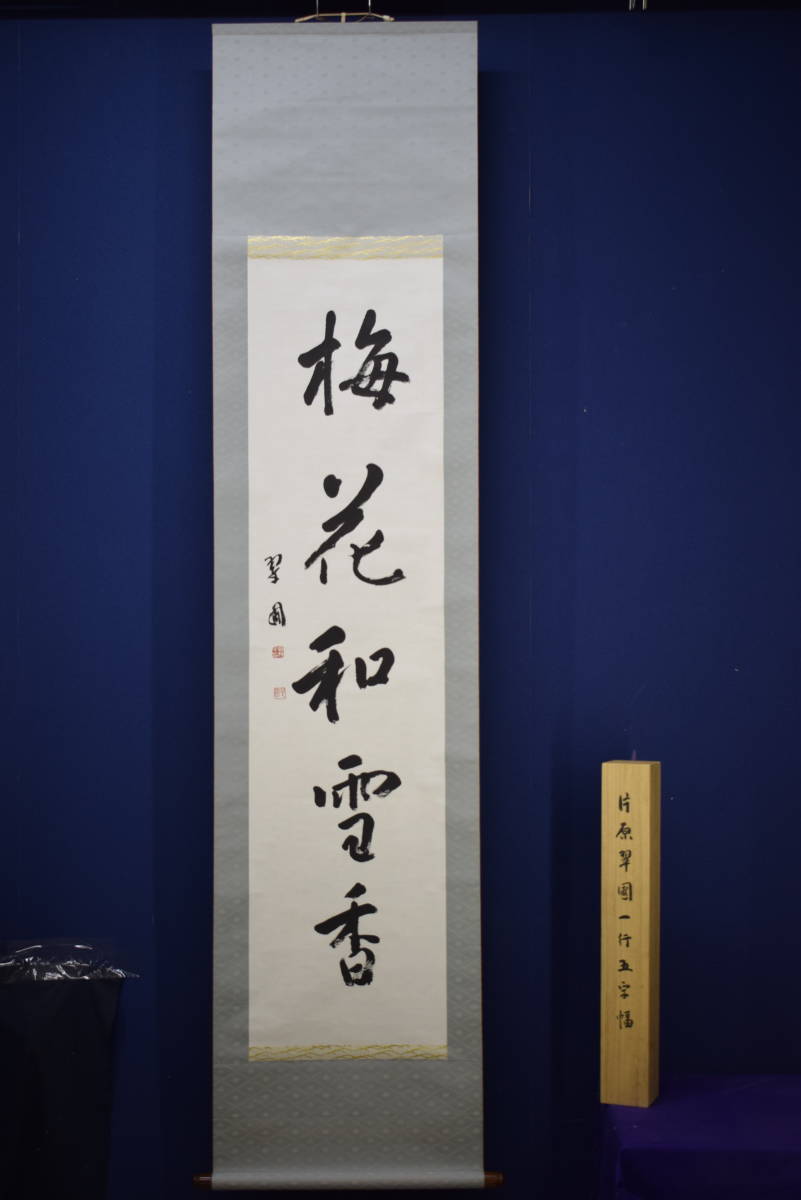 梅花和雪香
翠圃
片原翠園一行五字幅